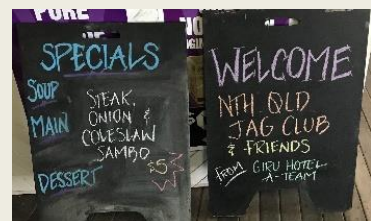 SPECIALS
SOUP
MAIN
STEAK,
ONION &
COLESLAW
SAMBO
$5
DESSERT
WELCOME
NTH QLD
JAG CLUB
& FRIENDS
FROM GIRU HOTEL
A-TEAM